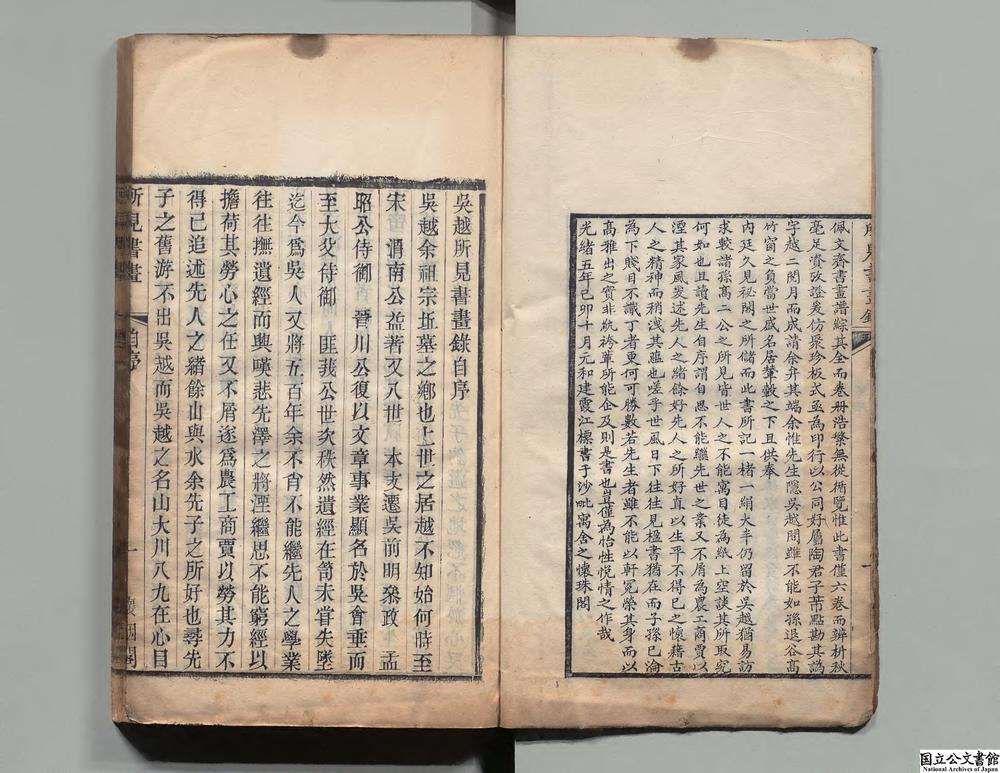 佩文齋書畫譜綜其全而卷冊浩繁無從徧覽惟此書僅六卷而辨析秋
毫足資攷證爰仿聚珍板式亟為印行以公同好屬陶君子芾點勘其譌
字越二閱月而成請余弁其端余惟先生隱吳越間雖不能如孫退谷高
竹窗之負當世盛名居輦轂之下且供奉
內廷久見祕閣之所儲而此書所記一楮一絹大半仍留於吳越猶易訪
求較諸孫高二公之所見皆世人之不能寓目徒為紙上空談其所取究
何如也且讀先生自序謂自思不能繼先世之業又不屑為農工商賈以
湮其家風爰述先人之緒餘好先人之所好直以生平不得已之懷藉古
人之精神而稍洩其蘊也嗟乎世風日下往往見楹書猶在而子孫已淪
為下賤目不識丁者更何可勝數若先生者雖不能以軒冕榮其身而以
高雅出之實非紈袴輩所能企及則是書也豈僅為怡性悅情之作哉
光緒五年己卯十月元和建霞江標書于沙毗寓舍之懷珠閣
吳越所見書畫錄自序
吳越余祖宗坵墓之鄉也上世之居越不知始何時至
宋 渭南公益著又八世 本支遷吳前明叅政 孟
昭公侍御 晉川公復以文章事業顯名於吳會垂而
至大父侍御 匪莪公世次秩然遺經在笥未嘗失墜
迄今為吳人又將五百年余不肖不能繼先人之學業
往往撫遺經而興嘆悲先澤之將湮繼思不能窮經以
擔荷其勞心之任又不屑逐為農工商賈以勞其力不
得已追述先人之緒餘山與水余先子之所好也尋先
子之舊游不出吳越而吳越之名山大川八九在心目
所見書畫 自序 一
国立公文書館
National Archives of Japan